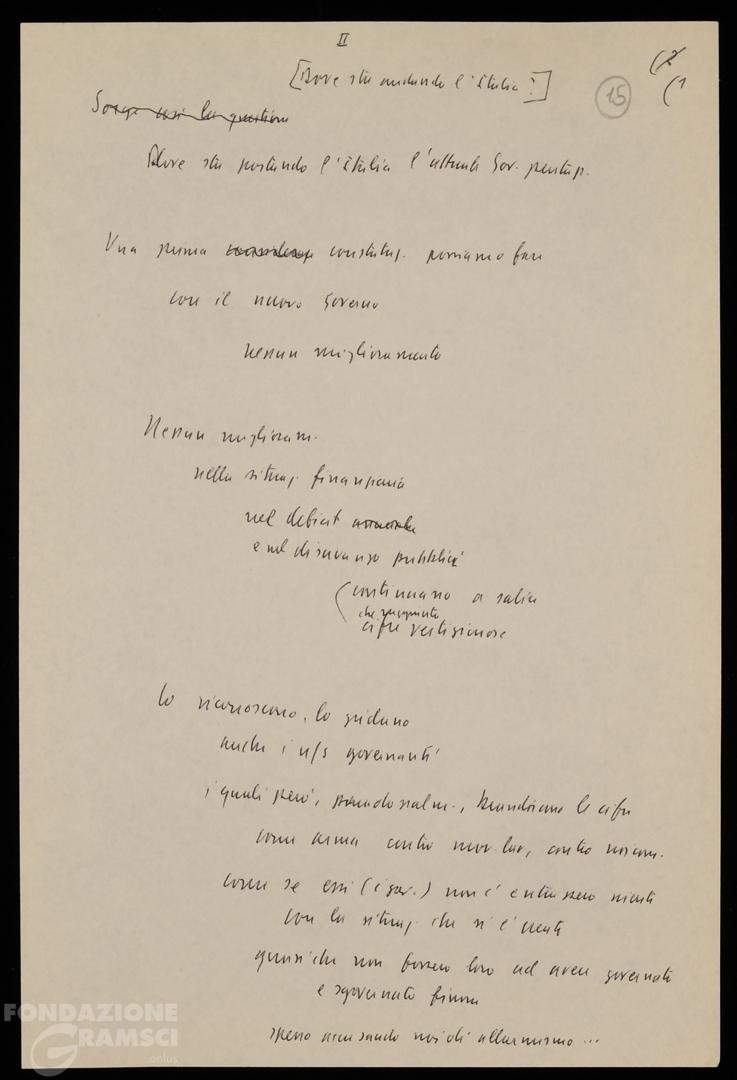 II
[Dove sta andando l'Italia?]
(2
(1
15
Sorge così la questione
Dove sta portando l'Italia l'attuale Gov. pentap.
Una prima constataz. possiamo fare
con il nuovo Governo
nessun miglioramento
Nessun miglioram.
nella situaz. finanziaria
nel debit
e nel disavanzo pubblici
(continuano a salire
che raggiunto
cifre vertiginose
Lo riconoscono, lo gridano
anche i n/s governanti
i quali però, paradossalm., brandiscono le cifre
come arma contro mov. lav., contro noi com.
come se essi (i gov.) non c'entrassero niente
con la situaz. che si è creata
quasi che non fossero loro ad avere governato
e sgovernato finora
spesso accusando noi di allarmismo ...
FONDAZIONE
GRAMSCI
onlus